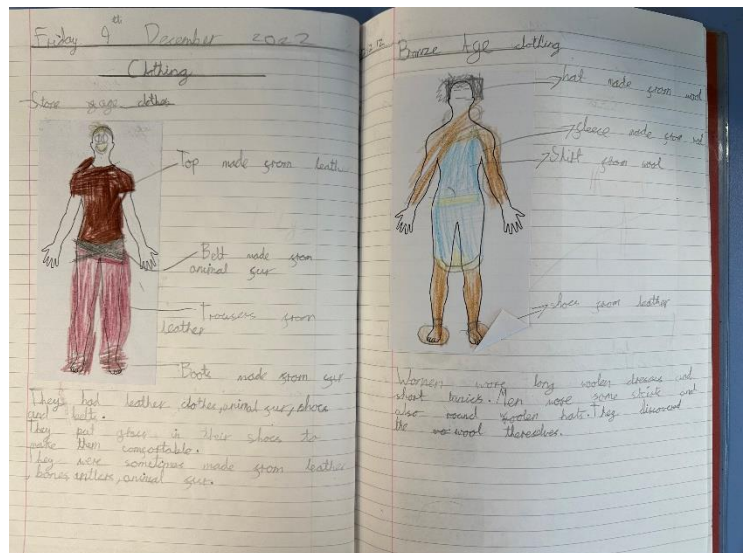 Friday 9th December 2022
Clothing
Stone age clothes
Top made from leathe
Belt made from
animal fur
Trousers from
leather
Boots made from fur
They had leather clothes, animal fur, shoes
and belt.
They put grass in their shoes to
make them comfortable.
They were sometimes made from leather
, bones, antlers, animal fur.
Bronze Age clothing
hat made from wool
fleece made from
Shirt from wool
shoes from leather
Women wore long woolen dresses and
short tunics. Men wore some shirt and
also round woolen hats. They discoverd
the wool themselves.